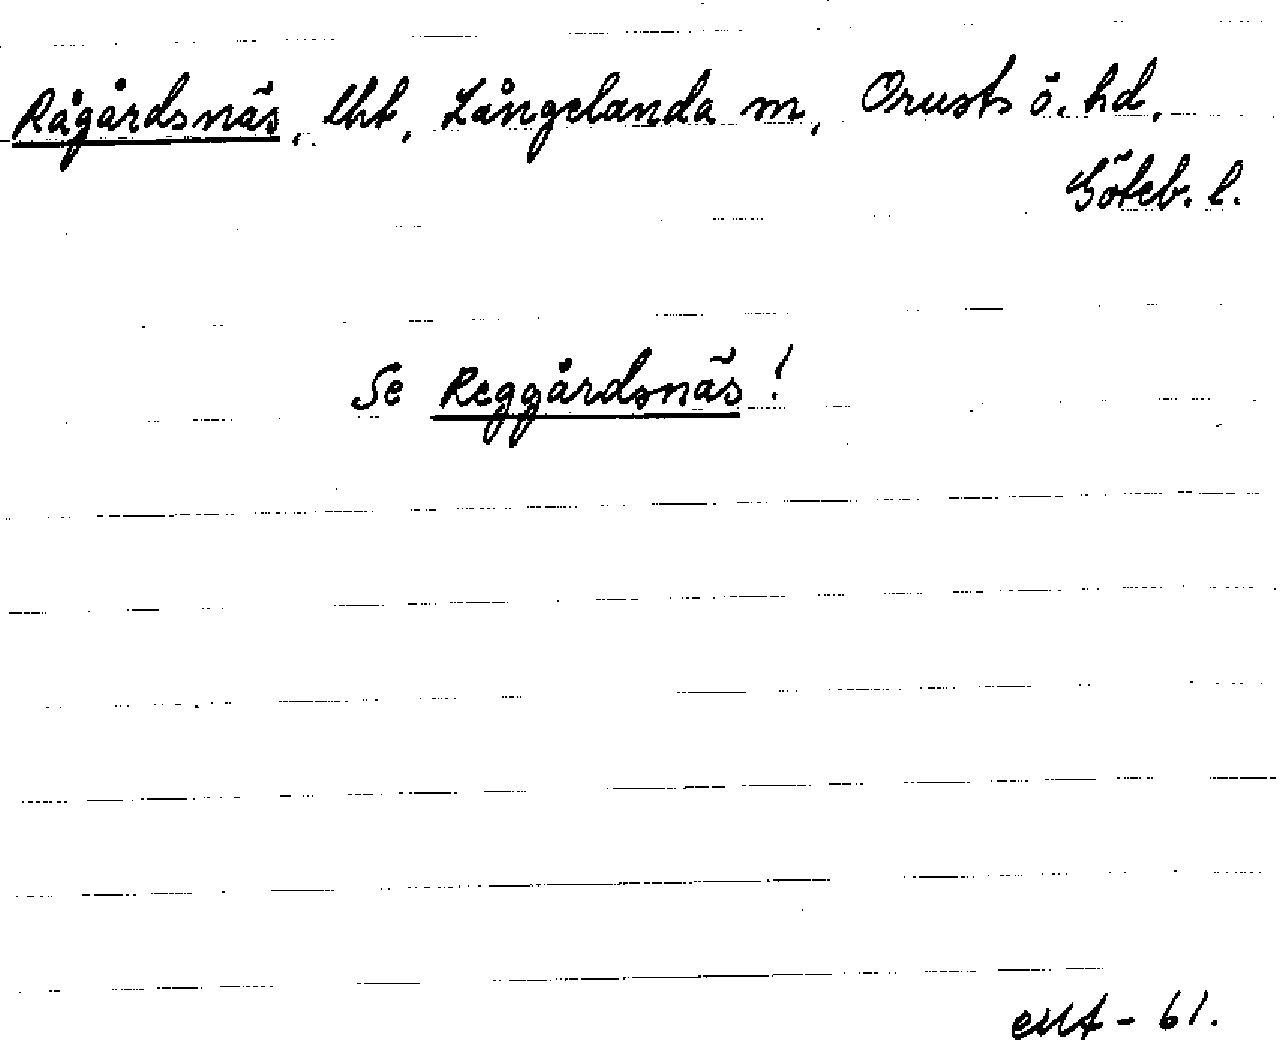 Rågårdsnäs, lht, Långelanda sn, Orusts ö. hd,
Göteb. l.
Se Reggårdsnäs!
- 61.